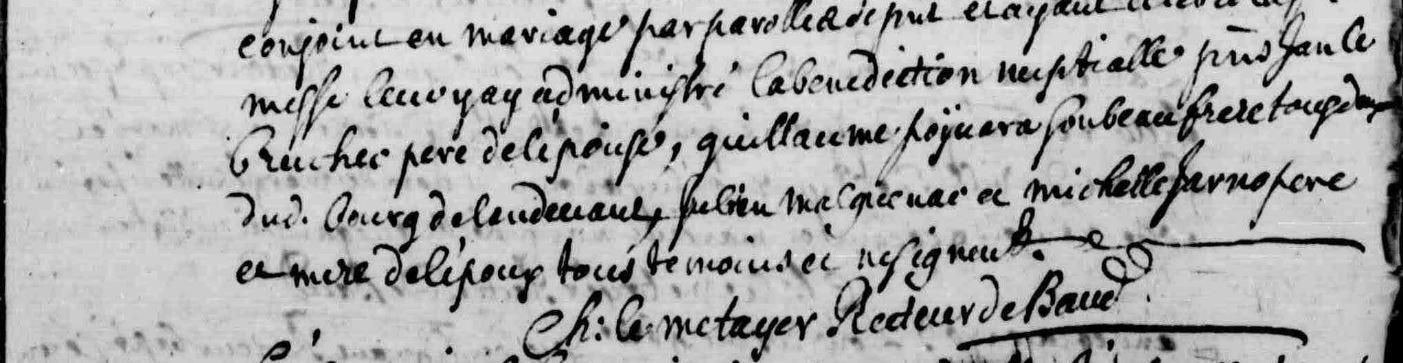 conjoint en mariage par parolle de pnt et ayant
messe leur y ay administré la benediction nuptialle pnts Jan le
bruchec pere de lepouse, guillaume son beau frere tous deux
dud. bourg de landevant, julien et michelle Jarno pere
et mere de lépoux tous temoins et ne signent.
Ch: le metayer Recteur de Baud